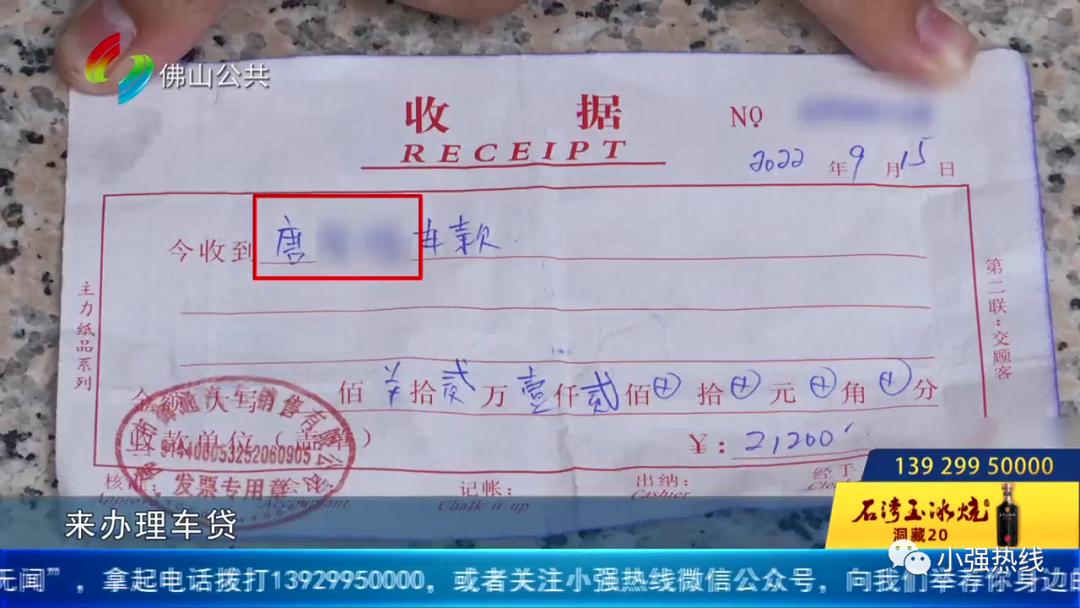 佛山公共
收据
RECEIPT
NO
2022年9月15日
今收到 唐 车款
主力纸品系列
第二联：交顾客
佰¥拾贰万壹仟贰佰⊕拾⊕元⊕角⊕分
收款单位（盖章）
¥：21,200
914406053252060905
发票专用章
核准：
会计：
Accountant
记帐：
Chalk it up
出纳：
Cashier
经手
139 299 50000
石湾玉冰烧
洞藏20
来办理车贷
小强热线
无闻”，拿起电话拨打13929950000，或者关注小强热线微信公众号，向我们举荐你身边的